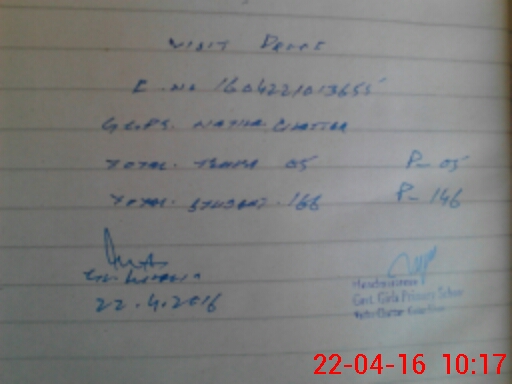 VISIT
E. No 1604221013655
G.G.P.S. NATHA CHATTAR
TOTAL. 05 P- 05
TOTAL. STUDENT. 166 P- 146
22.4.2016
Headmistress
Govt. Girls Primary School
22-04-16 10:17